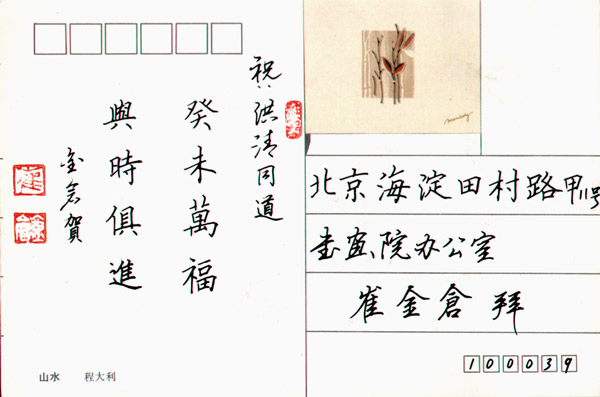 祝洪清同道
癸未萬福
與時俱進
金倉賀
山水 程大利
北京海淀田村路甲11号
书画院办公室
崔金倉 拜
100039